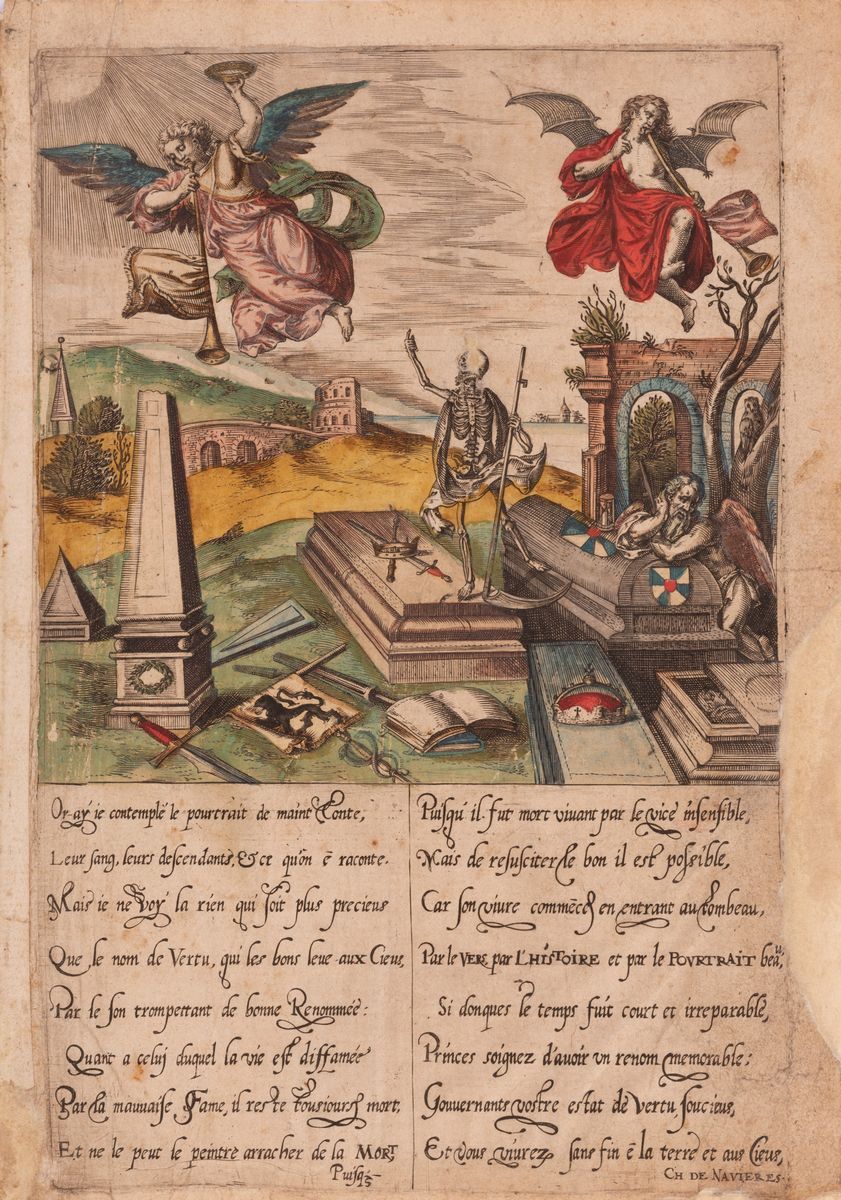 Or ay ie contemplé le pourtrait de maint Conte,
Leur sang, leurs descendants, & ce qu'on ē raconte.
Mais ie ne voy la rien qui soit plus precieus
Que le nom de Vertu, qui les bons leue aux Cieus,
Par le son trompettant de bonne Renommée:
Quant a celui duquel la vie est diffamée
Par la mauuaise Fame, il reste tousiours mort,
Et ne le peut le peintre arracher de la MORT,
Puisq;
Puisqu'il fut mort viuant par le vice insensible,
Mais de resusciter le bon il est possible,
Car son viure commēce en entrant au tombeau,
Par le VERS, par L'HISTOIRE et par le POVRTRAIT beau,
Si donques le temps fuit court et irreparable,
Princes soignez d'auoir vn renom memorable:
Gouuernants vostre estat de Vertu soucieus,
Et vous viurez sans fin ē la terre et aus Cieus,
CH DE NAVIERES.